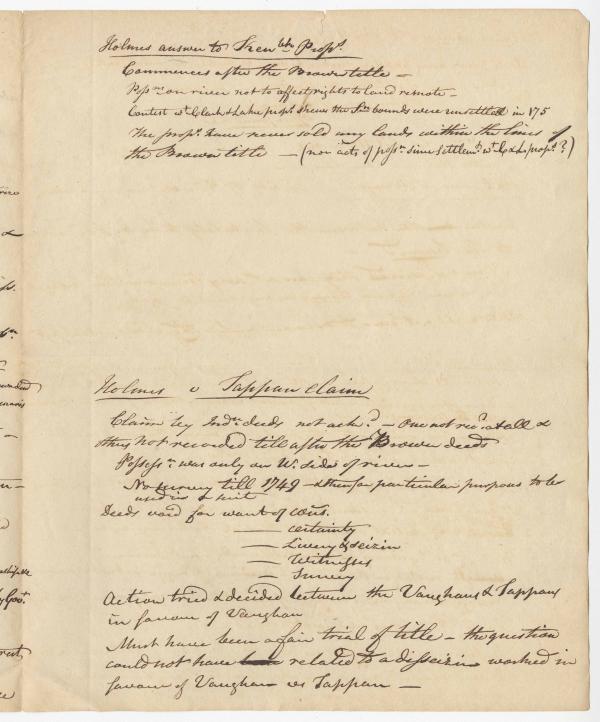 Holmes answer to Kenbk Propʳˢ.
Commences after the Brown title —
Possⁿ on river not to affect rights to land remote —
Contest wᵗ Clark & Lake propʳˢ shews the Sⁿ bounds were unsettled in 175
The propʳˢ have never sold any lands within the lines of
the Brown title — (nor acts of possⁿ since settlemᵗ wᵗ C & L propʳˢ?)
Holmes v Tappan claim
Claim by Indⁿ deeds not ackᵈ — one not recᵈ at all &
others not recorded till after the Brown deeds
Possessⁿ was only on Wⁿ side of river —
No survey till 1749 — & then for particular purposes to be
used in a suit
Deeds void for want of cons.
— certainty
— Livery & seizin
— Witnesses
— Survey
Action tried & decided between the Vaughans & Tappans
in favour of Vaughan
Must have been a fair trial of title — the question
could not have related to a disseizin worked in
favour of Vaughan vs Tappan —